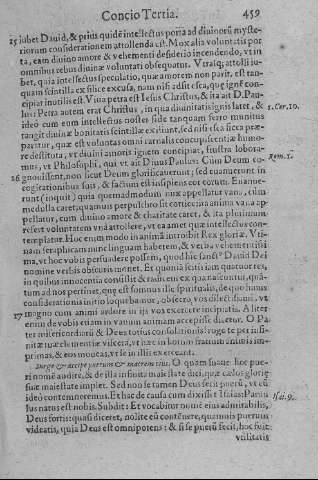 Concio Tertia. 459
15 iubet Dauid, & prius quidẽ intellectus porta ad diuinorũ myste-
riorum considerationem attollenda est. Mox alia voluntatis por
ta, eam diuino amore & vehementi desiderio incendendo, vt in
omnibus rebus diuinæ voluntati obsequatur. Vtrasq; attolli iu-
bet, quia intellectus speculatio, quæ amorem non parit, est tan-
quam scintilla ex silice excusa, nam nisi adsit esca, quę ignẽ con-
cipiat inutilis est. Viua petra est Iesus Christus, & ita ait D. Pau-
lus: Petra autem erat Christus, in qua diuinitatis ignis latet, & 1. Cor. 10.
ideo cum eum intellectus noster fide tanquam ferro munitus
tangit diuinæ bonitatis scintillæ exiliunt, sed nisi esca sicca præ-
paretur, quæ est voluntas omni carnalis concupiscentiæ humo-
re destituta, vt diuini amoris ignem concipiat, frustra labora-
mus, vt Philosophi, qui vt ait Diuus Paulus: Cùm Deum co- Rom. 1.
16 gnouissent, non sicut Deum glorificauerunt; sed euanuerunt in
cogitationibus suis, & factum est insipiens cor eorum. Euanue-
runt (inquit) quia quemadmodum nux appellatur vana, cùm
medulla caret quamuis perpulchro sit cortice: ita anima vana ap-
pellatur, cum diuino amore & charitate caret, & ita plurimum
refert voluntatem vnà attollere, vt ea amet quæ intellectus con-
templatur. Hoc enim modo in animã introibit Rex gloriæ. Vti-
nam seraphicam nunc linguam haberem, & verba vehementissi-
ma, vt hoc vobis persuadere possem, quod hic sanctꝰ Dauid Dei
nomine verbis obscuris monet. Et quoniã scitis iam quatuor res,
in quibus innocentia consistit & radicem ex qua nascuntur, quã-
tum ad nos pertinet, quę est somnus ille spiritualis, de quo huius
considerationis initio loquebamur, obsecro, vos dilecti diaui, vt
17 magno cum animi ardore in ijs vos exercere incipiatis. Aliter
enim de vobis etiam in vanum animam accepisse dicetur. O Pa
ter misericordiarũ & Deus totius consolationis! rogo te per infi-
nitæ tuæ clementiæ viscera, vt hæc in horum fratrum animis im-
primas, & eos moueas, vt se in illis exerceant.
Surge & accipe puerum & matrem eius. O quàm suaue hoc pue-
ri nomẽ audire, & de illa infinita maiestate dici, quæ cælos glorię
suæ maiestate implet. Sed non se tamen Deus fecit puerũ, vt eũ
ideò contemneremus. Et hac de causa cum dixisset Isaias: Paruu Isai. 9.
lus natus est nobis. Subdit: Et vocabitur nomẽ eius admirabilis,
Deus fortis: quasi diceret, nolite eũ contẽnere, quamuis puerum
videatis, quia Deus est omnipotens: & si se puerũ fecit, hoc suit
vtilitatis